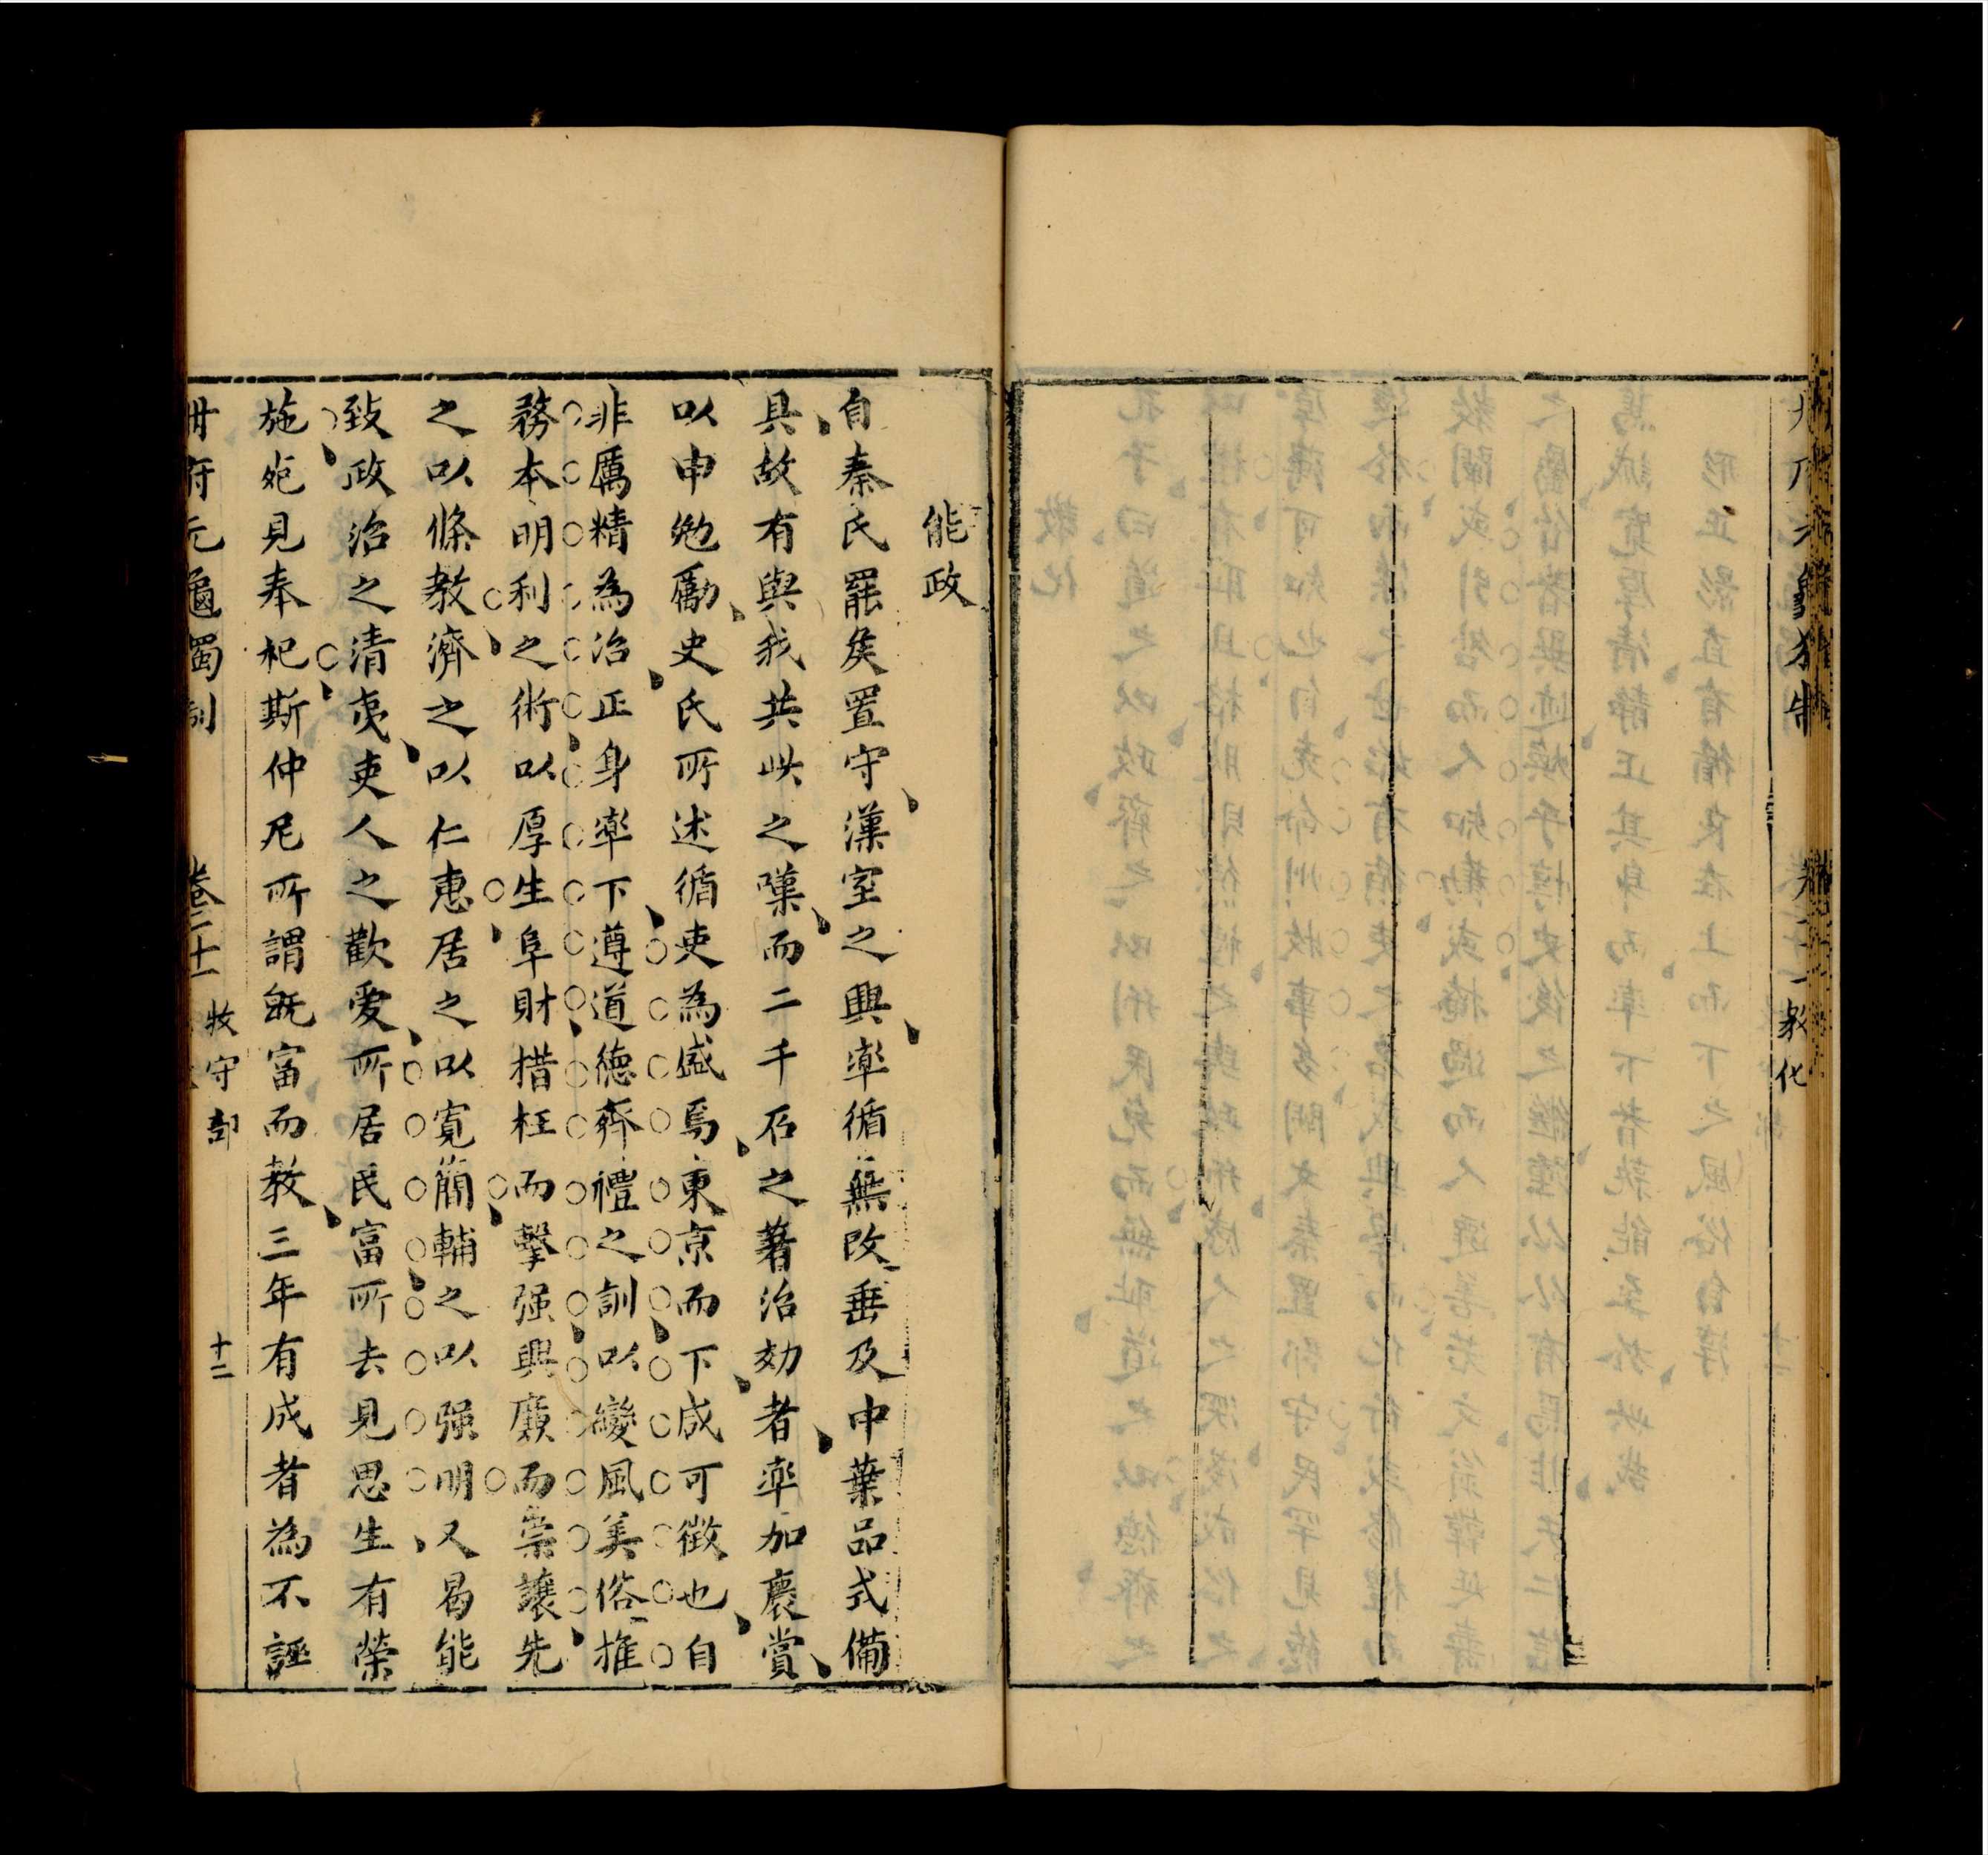 教化
能政
自秦氏罷矦置守漢室之興率循無改垂及中葉品式備
具故有與我共此之嘆而二千石之著治効者率加褒賞
以申勉勵史氏所述循吏為盛焉東京而下咸可徵也自
非厲精為治正身率下遵道德齊禮之訓以變風美俗推
務本明利之術以厚生阜財措枉而擊强興廉而崇讓先
之以條教濟之以仁惠居之以寬簡輔之以强明又曷能
致政治之清夷吏人之歡愛所居民富所去見思生有榮
施死見奉祀斯仲尼所謂旣富而教三年有成者為不誣
冊府元龜獨制 卷二十一 牧守部 十二